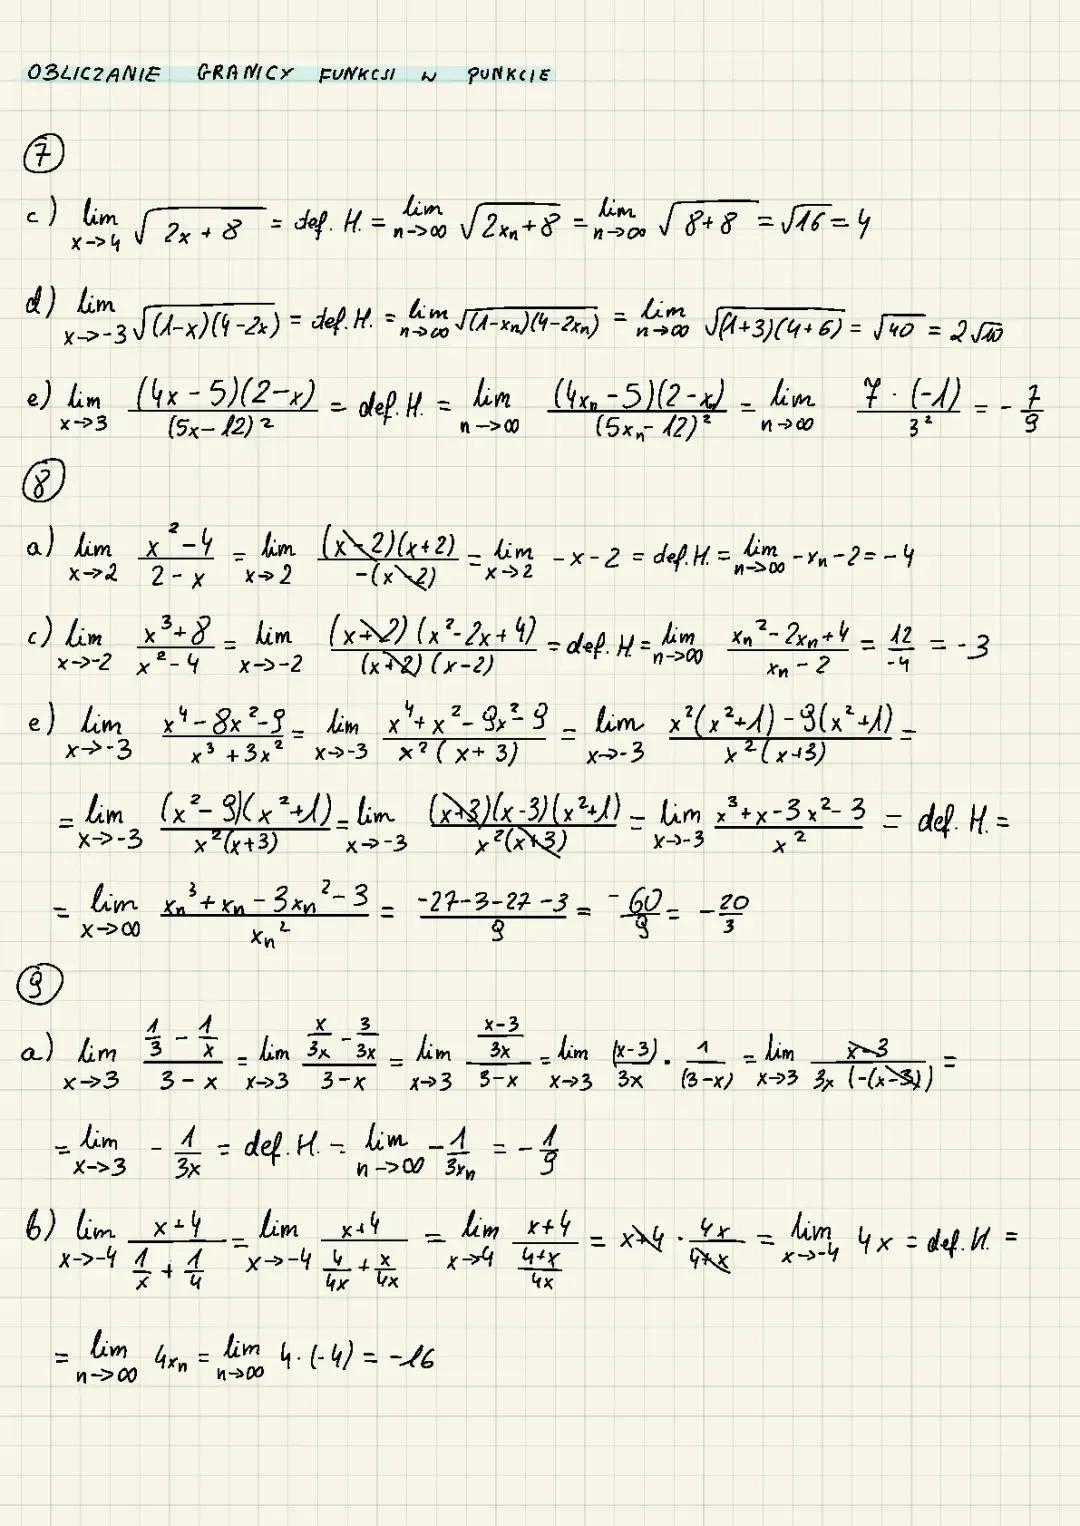 OBLICZANIE GRANICY FUNKCJI W PUNKCIE
7
c) lim x->4 √(2x + 8) = def. H. = lim n->∞ √(2xₙ+8) = lim n->∞ √(8+8) = √16 = 4
d) lim x->-3 √((1-x)(4-2x)) = def. H. = lim n->∞ √((1-xₙ)(4-2xₙ)) = lim n->∞ √((1+3)(4+6)) = √40 = 2√10
e) lim x->3 (4x-5)(2-x)/(5x-12)² = def. H. = lim n->∞ (4xₙ-5)(2-x)/(5xₙ-12)² = lim n->∞ 7·(-1)/3² = -7/9
8
a) lim x->2 (x²-4)/(2-x) = lim x->2 (x-2)(x+2)/-(x-2) = lim x->2 -x-2 = def. H. = lim n->∞ -xₙ-2 = -4
c) lim x->-2 (x³+8)/(x²-4) = lim x->-2 (x+2)(x²-2x+4)/(x+2)(x-2) = def. H = lim n->∞ (xₙ²-2xₙ+4)/(xₙ-2) = 12/-4 = -3
e) lim x->-3 (x⁴-8x²-9)/(x³+3x²) = lim x->-3 (x⁴+x²-9x²-9)/(x²(x+3)) = lim x->-3 (x²(x²+1)-9(x²+1))/(x²(x+3)) =
= lim x->-3 (x²-9)(x²+1)/(x²(x+3)) = lim x->-3 (x+3)(x-3)(x²+1)/(x²(x+3)) = lim x->-3 (x³+x-3x²-3)/x² = def. H. =
= lim x->∞ (xₙ³+xₙ-3xₙ²-3)/xₙ² = (-27-3-27-3)/9 = -60/9 = -20/3
9
a) lim x->3 (1/3 - 1/x)/(3-x) = lim x->3 (x/3x - 3/3x)/(3-x) = lim x->3 ((x-3)/3x)/(3-x) = lim x->3 (x-3)/3x · 1/(3-x) = lim x->3 (x-3)/(3x(-(x-3))) =
= lim x->3 -1/3x = def. H. = lim n->∞ -1/3xₙ = -1/9
b) lim x->-4 (x+4)/(1/x + 1/4) = lim x->-4 (x+4)/(4/4x + x/4x) = lim x->4 (x+4)/((4+x)/4x) = x+4 · 4x/(4+x) = lim x->-4 4x = def. H. =
= lim n->∞ 4xₙ = lim n->∞ 4·(-4) = -16